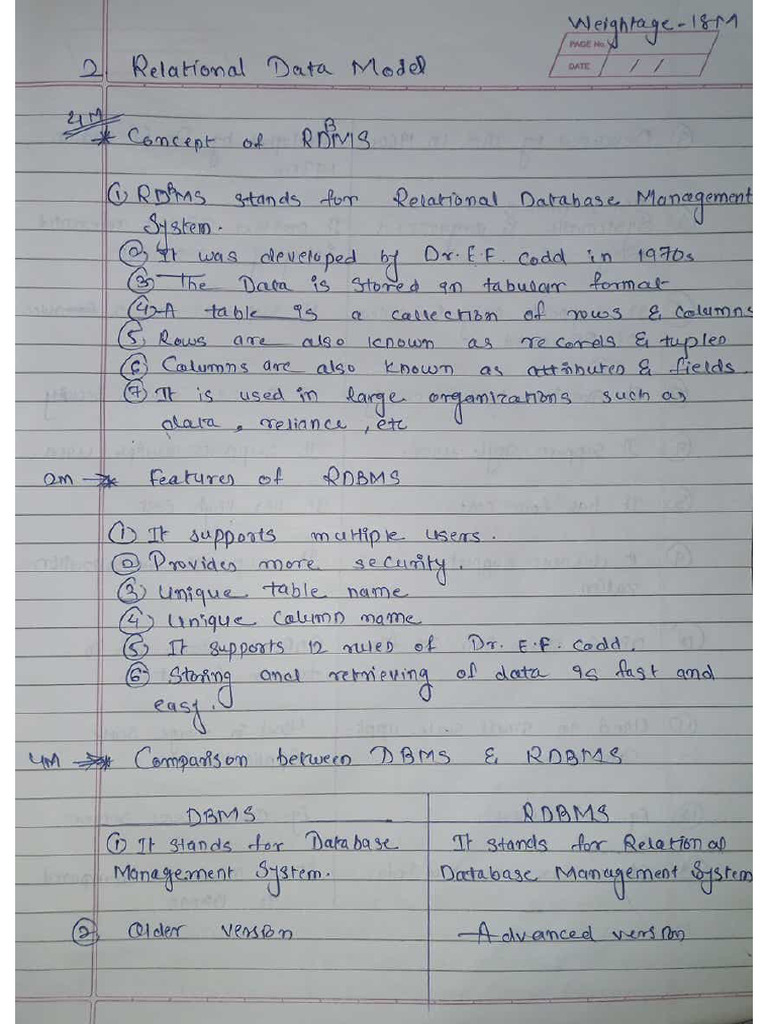 Weightage - 18M
PAGE No.
DATE / /
2 Relational Data Model
4M
* Concept of RDBMS
① RDBMS stands for Relational Database Management
System.
② It was developed by Dr. E.F. Codd in 1970s
③ The Data is stored in tabular format
④ A table is a collection of rows & columns
⑤ Rows are also known as records & tuples
⑥ Columns are also known as attributes & fields.
⑦ It is used in large organizations such as
data, reliance, etc
2M → * Features of RDBMS
① It supports multiple users.
② Provides more security.
③ Unique table name
④ Unique Column name
⑤ It supports 12 rules of Dr. E.F. Codd.
⑥ Storing and retrieving of data is fast and
easy.
4M → * Comparison between DBMS & RDBMS
DBMS RDBMS
① It stands for Database It stands for Relational
Management System. Database Management System
② Older version Advanced version